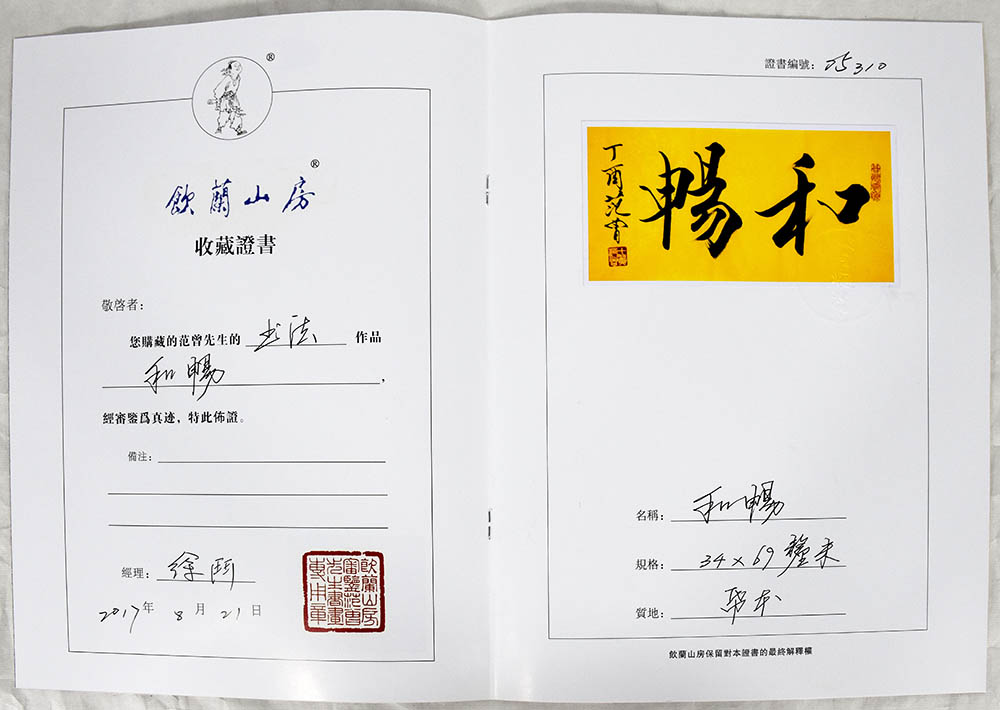 ®
飲蘭山房®
收藏證書
敬啓者:
您購藏的范曾先生的 书法 作品
和暢,
經審鑒爲真迹，特此佈證。
備注:
經理: 徐
2017年8月21日
飲蘭山房
審鑒范曾
先生書畫
專用章
證書編號: 05310
和暢
丁酉 范曾
名稱: 和暢
規格: 34×69 釐米
質地: 紙本
飲蘭山房保留對本證書的最終解釋權